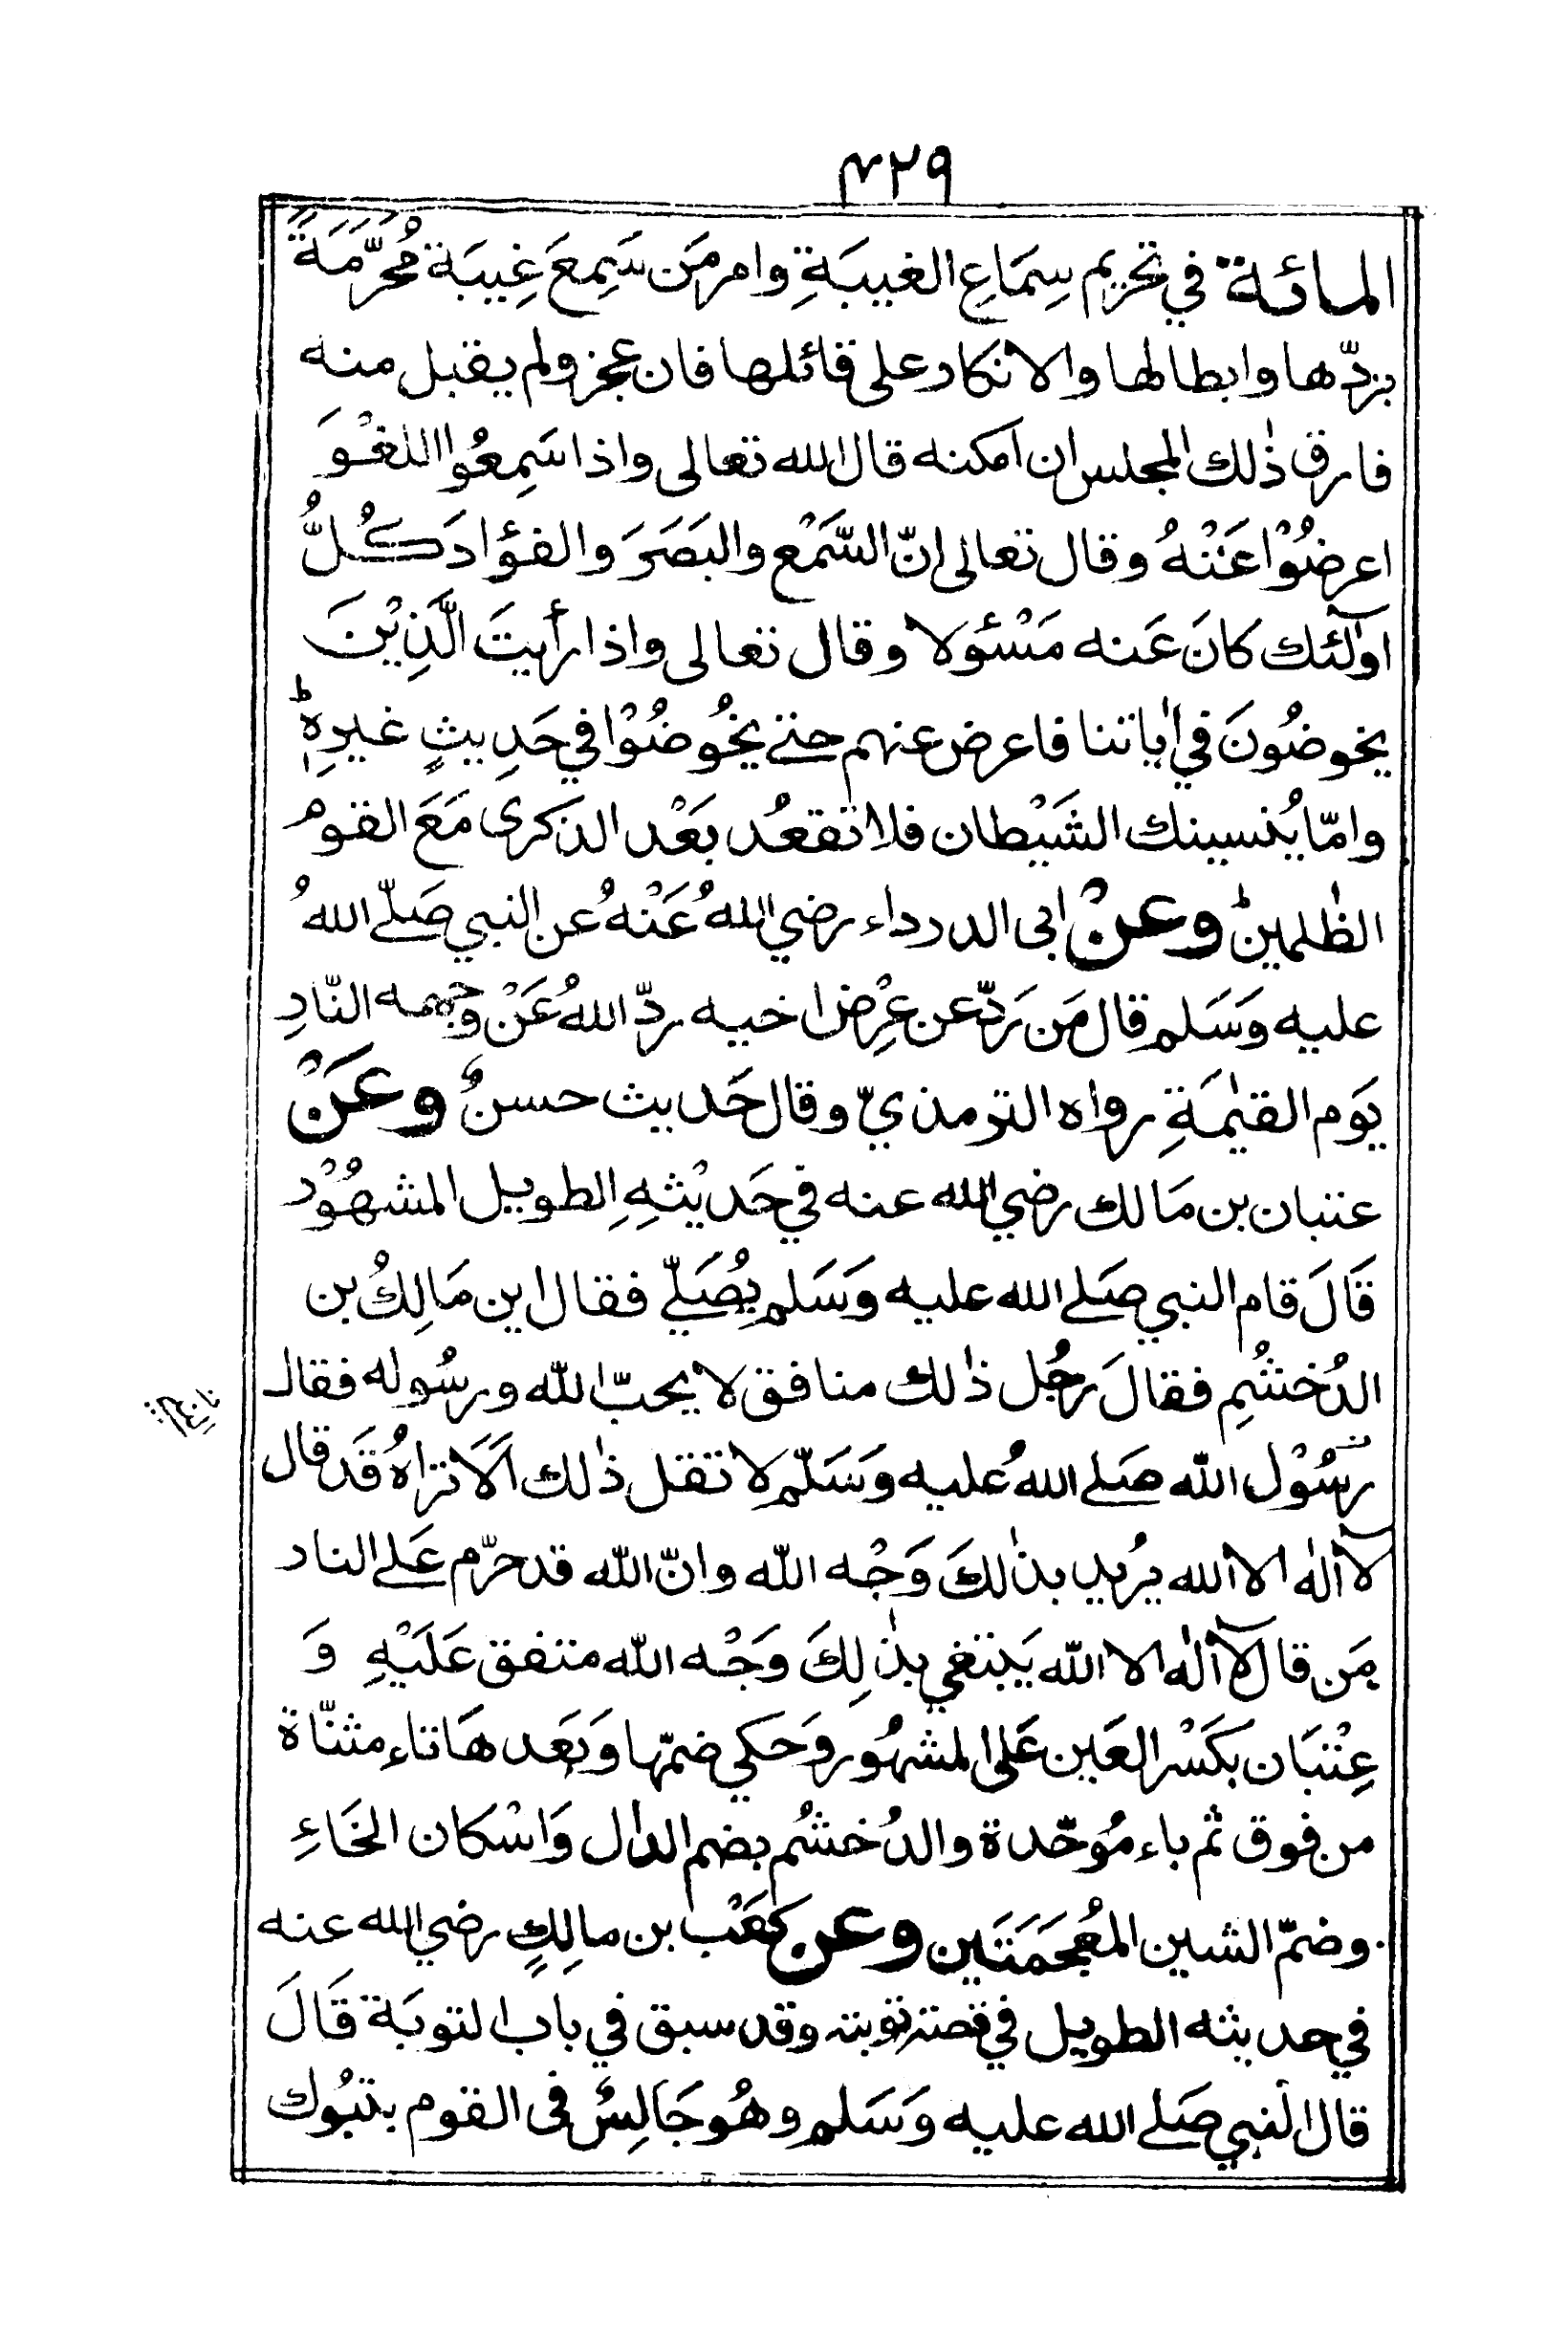 ٤٢٩
المائة في تحريم سِمَاعِ الغيبَةِ وامر مَن سَمِعَ غِيبَة مُحَرَّمَةً
بردّها وابطالها والانكار على قائلها فان عجز ولم يقبل منه
فارق ذٰلك المجلس ان امكنه قال الله تعالى واذا سَمِعُوا اللغْوَ
اعرضُوْا عَنْهُ وقال تعالى انّ السَّمْع والبَصَرَ والفؤاد كُلُّ
اولٰٓئك كانَ عَنه مَسْئولا وقال تعالى واذا رأيتَ الَّذِيْنَ
يخوضُونَ في اٰياتنا فاعرض عنهم حتے يخُوضُوْا في حَدِيثٍ غيرِهٖ ط
وامّا يُنسينك الشَيْطان فلا تقعُد بَعْد الذكرى مَعَ القوم
الظٰلمينَ وعنْ ابى الدرداء رضي اللهُ عَنْهُ عن النبي صَلّے اللهُ
عليه وَسَلم قال مَن رَدّ عن عِرْض اخيه ردّ اللهُ عَنْ وَجهه النّارِ
يَوم القيٰمَةِ رواه الترمذيّ وقال حَديث حسنٌ وعَنْ
عتبان بن مَالك رضي الله عنه في حَديْثِهِ الطويل المشهُوْر
قَالَ قام النبي صَلے الله عليه وَسَلم يُصَلّے فقال اين مَالِكُ بن
الدُخشُمِ فقالَ رجُل ذٰلك منافق لا يحبّ الله ورسُوله فقال
رسُوْل الله صَلے اللهُ عليه وَسَلّم لا تقل ذٰلك اَلَا تراهُ قَد قال
لآ الٰه الا الله يُريد بذٰلكَ وَجْه الله وانّ الله قد حرّم عَلے النار
مَن قال لآ الٰه الا الله يَبتغي بذٰلِكَ وَجْه الله متفق عَلَيْهِ وَ
عِتْبَان بكَسْر العَين عَلى المشهُور وَحَكي ضمّها وَبَعد هَا تاء مثنّاة
من فوق ثم باء مُوحّدة والدُخشُم بضم الدال وَاسْكان الخَاءِ
وضمّ الشين المعُجَمَتَين وعن كَعْب بن مالِكٍ رضي الله عنه
في حديثه الطويل في قصة توبته وقد سبق في باب التوبَة قَالَ
قال النبي صَلے الله عليه وَسَلم وهُو جَالِسٌ فى القوم بتبُوك